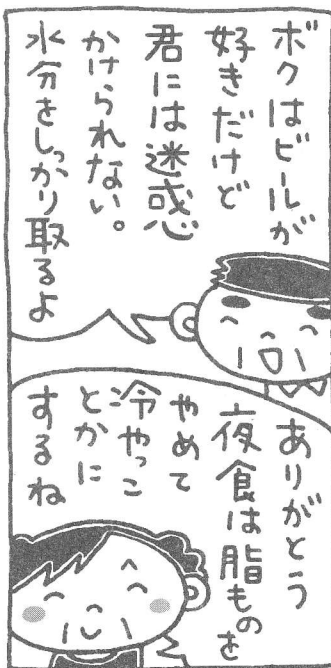 ボクはビールが
好きだけど
君には迷惑
かけられない。
水分をしっかり取るよ
ありがとう
夜食は脂ものを
やめて
冷やっこ
とかに
するね